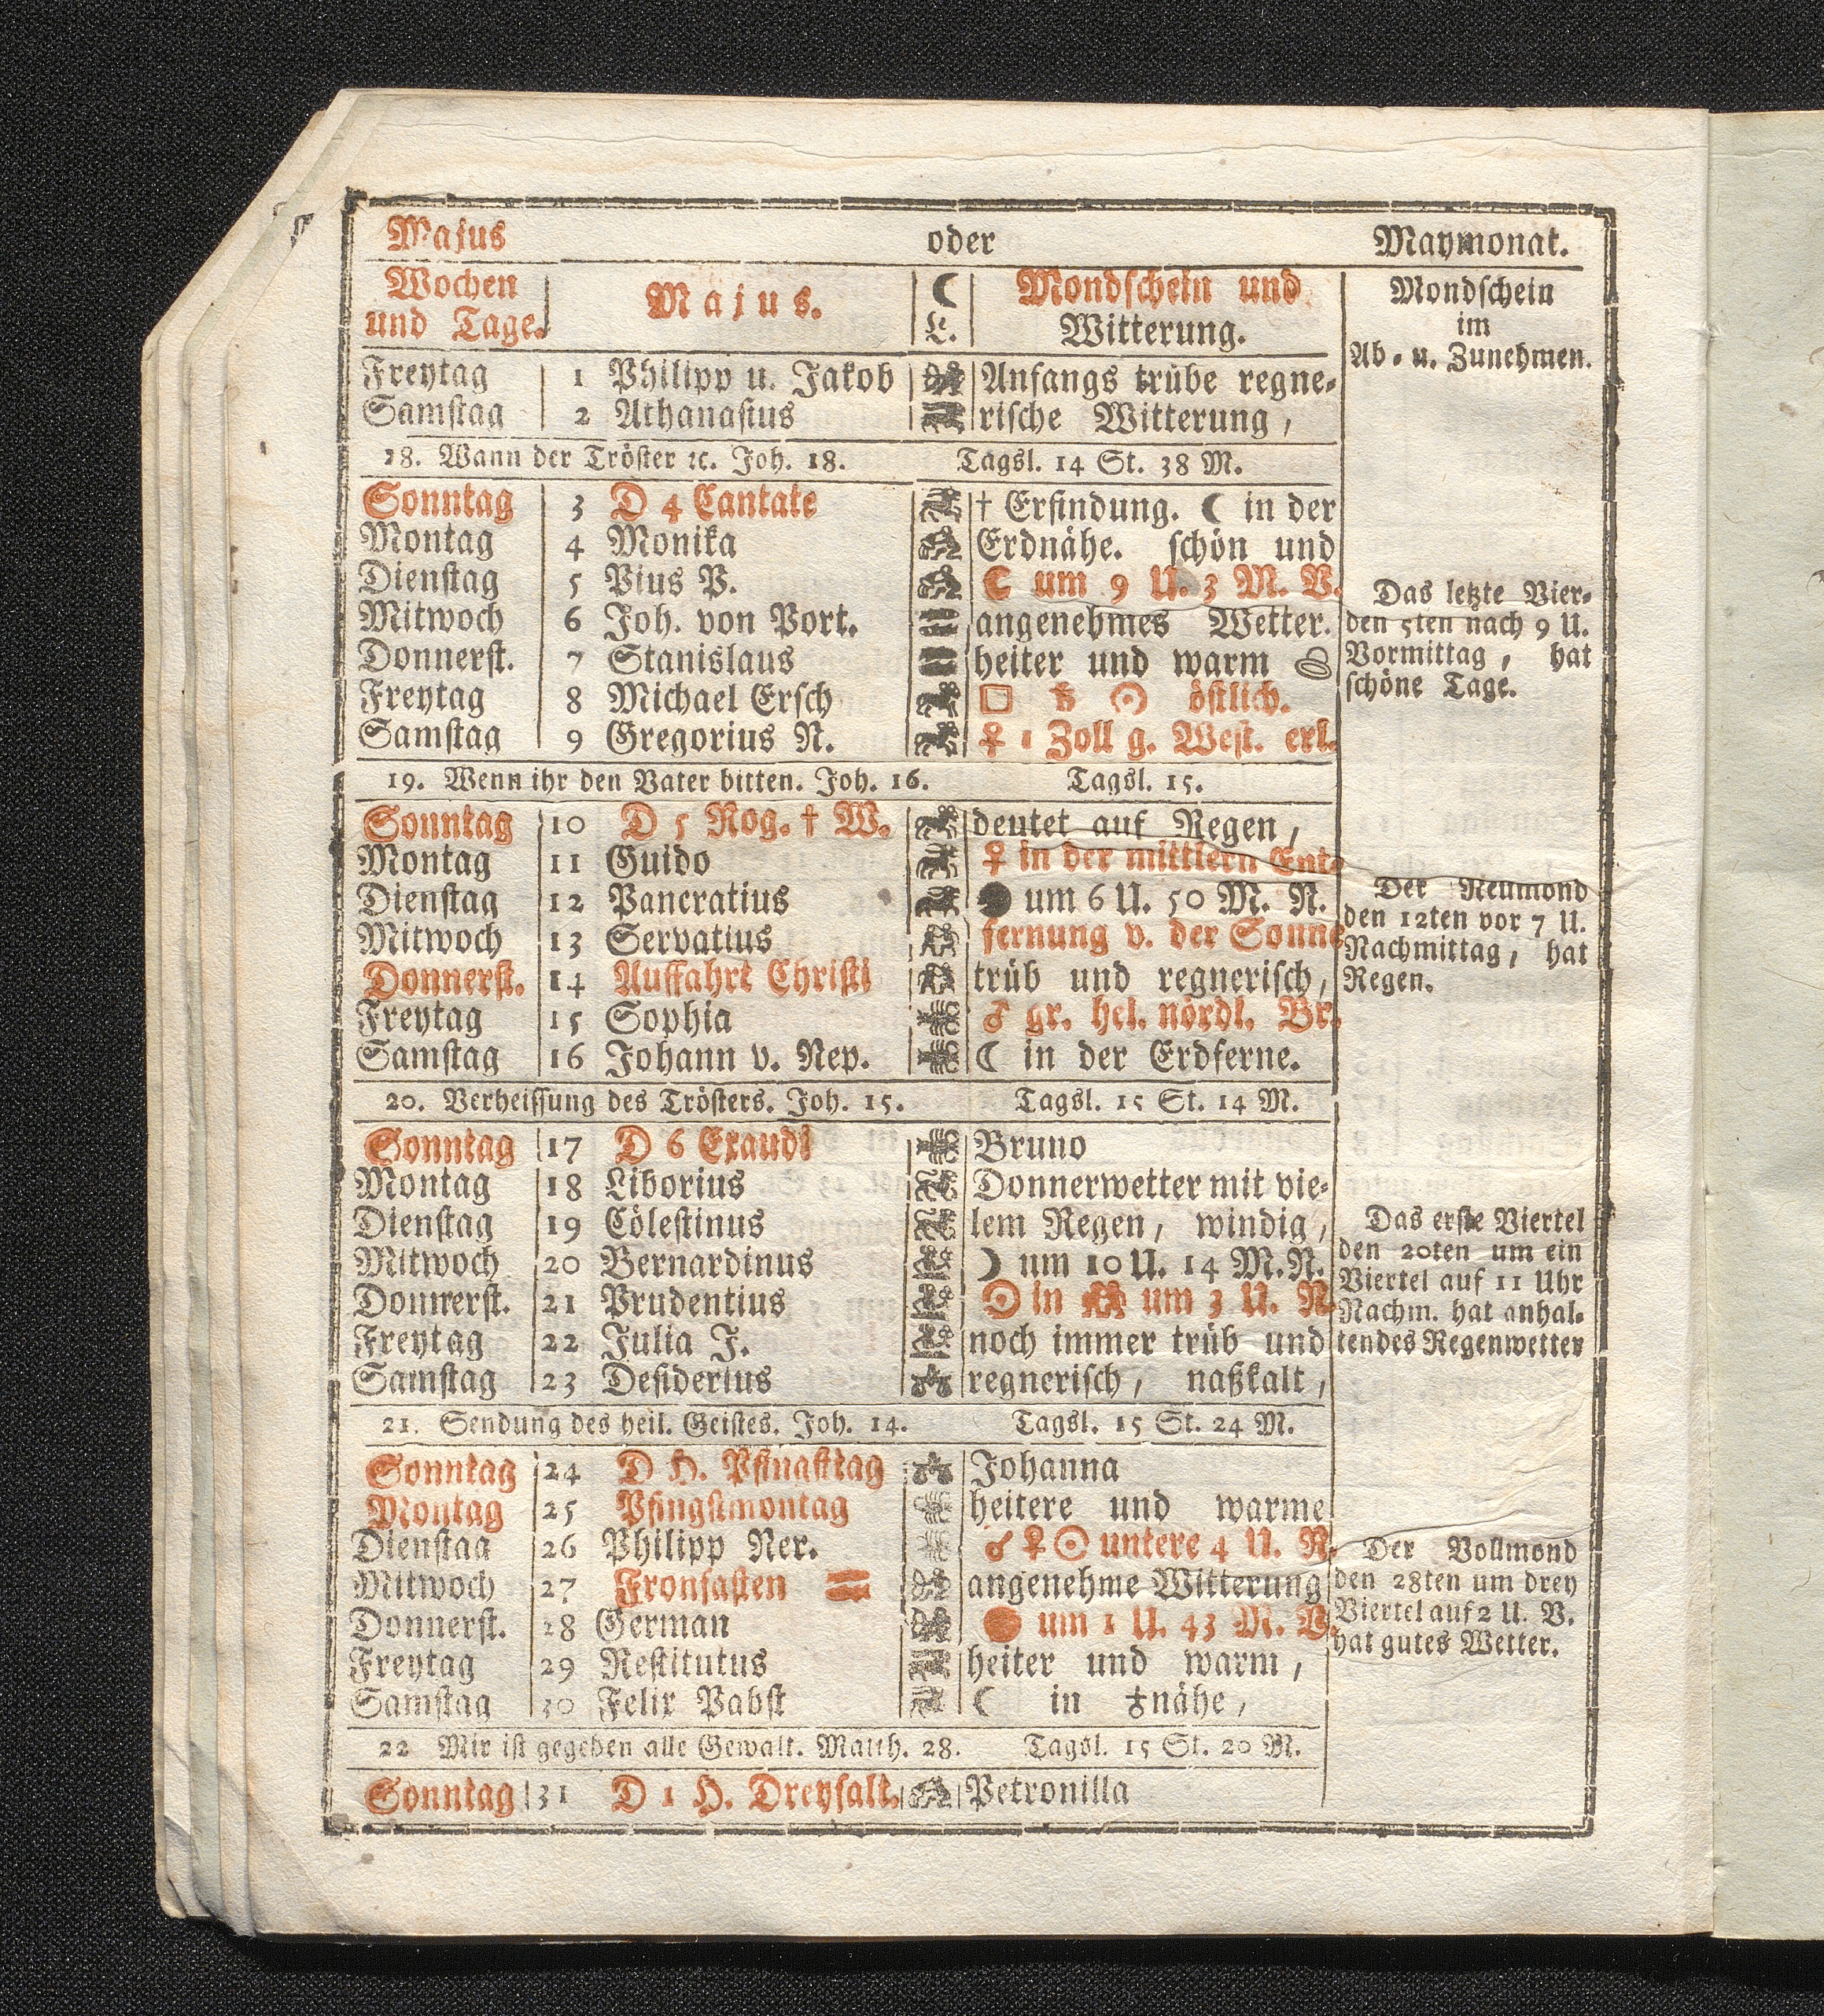 Majus oder Maymonat.
Wochen und Tage. Majus. ☾ L. Mondschein und Witterung.
Mondschein
im
Ab- u. Zunehmen.
Freytag 1 Philipp u. Jakob Anfangs trübe regne-
Samstag 2 Athanasius rische Witterung,
18. Wann der Tröster ꝛc. Joh. 18. Tagsl. 14 St. 38 M.
Sonntag 3 D 4 Cantate † Erfindung. ☾ in der
Montag 4 Monika Erdnähe. schön und
Dienstag 5 Pius P. ☾ um 9 U. 3 M. V.
Mitwoch 6 Joh. von Port. angenehmes Wetter.
Donnerst. 7 Stanislaus heiter und warm
Freytag 8 Michael Ersch □ ♄ ☉ östlich.
Samstag 9 Gregorius N. ♀ 1 Zoll g. West. erl.
Das letzte Vier-
den 5ten nach 9 U.
Vormittag, hat
schöne Tage.
19. Wenn ihr den Vater bitten. Joh. 16. Tagsl. 15.
Sonntag 10 D 5 Rog. † W. deutet auf Regen,
Montag 11 Guido ♀ in der mittlern Ent-
Dienstag 12 Pancratius ● um 6 U. 50 M. N.
Mitwoch 13 Servatius fernung v. der Sonne
Donnerst. 14 Auffahrt Christi trüb und regnerisch,
Freytag 15 Sophia ♂ gr. hel. nördl. Br.
Samstag 16 Johann v. Nep. ☾ in der Erdferne.
Der Neumond
den 12ten vor 7 U.
Nachmittag, hat
Regen.
20. Verheissung des Trösters. Joh. 15. Tagsl. 15 St. 14 M.
Sonntag 17 D 6 Exaudi Bruno
Montag 18 Liborius Donnerwetter mit vie-
Dienstag 19 Cölestinus lem Regen, windig,
Mitwoch 20 Bernardinus ☽ um 10 U. 14 M. N.
Donnerst. 21 Prudentius ☉ in ♊ um 3 U. N.
Freytag 22 Julia J. noch immer trüb und
Samstag 23 Desiderius regnerisch, naßkalt,
Das erste Viertel
den 20ten um ein
Viertel auf 11 Uhr
Nachm. hat anhal-
tendes Regenwetter
21. Sendung des heil. Geistes. Joh. 14. Tagsl. 15 St. 24 M.
Sonntag 24 D H. Pfingsttag Johanna
Montag 25 Pfingstmontag heitere und warme
Dienstag 26 Philipp Ner. ☌ ♀ ☉ untere 4 U. N.
Mitwoch 27 Fronfasten angenehme Witterung
Donnerst. 28 German ● um 1 U. 43 M. V.
Freytag 29 Restitutus heiter und warm,
Samstag 30 Felix Pabst ☾ in ♁nähe,
Der Vollmond
den 28ten um drey
Viertel auf 2 U. V.
hat gutes Wetter.
22 Mir ist gegeben alle Gewalt. Matth. 28. Tagsl. 15 St. 20 M.
Sonntag 31 D 1 H. Dreyfalt. Petronilla